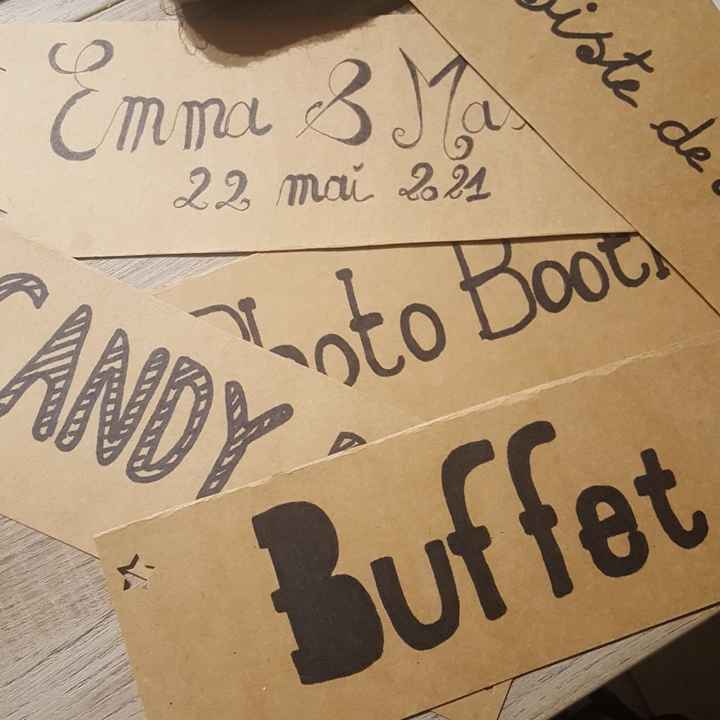 Emma & Ma
22 mai 2021
Piste de
Photo Booth
CANDY
Buffet